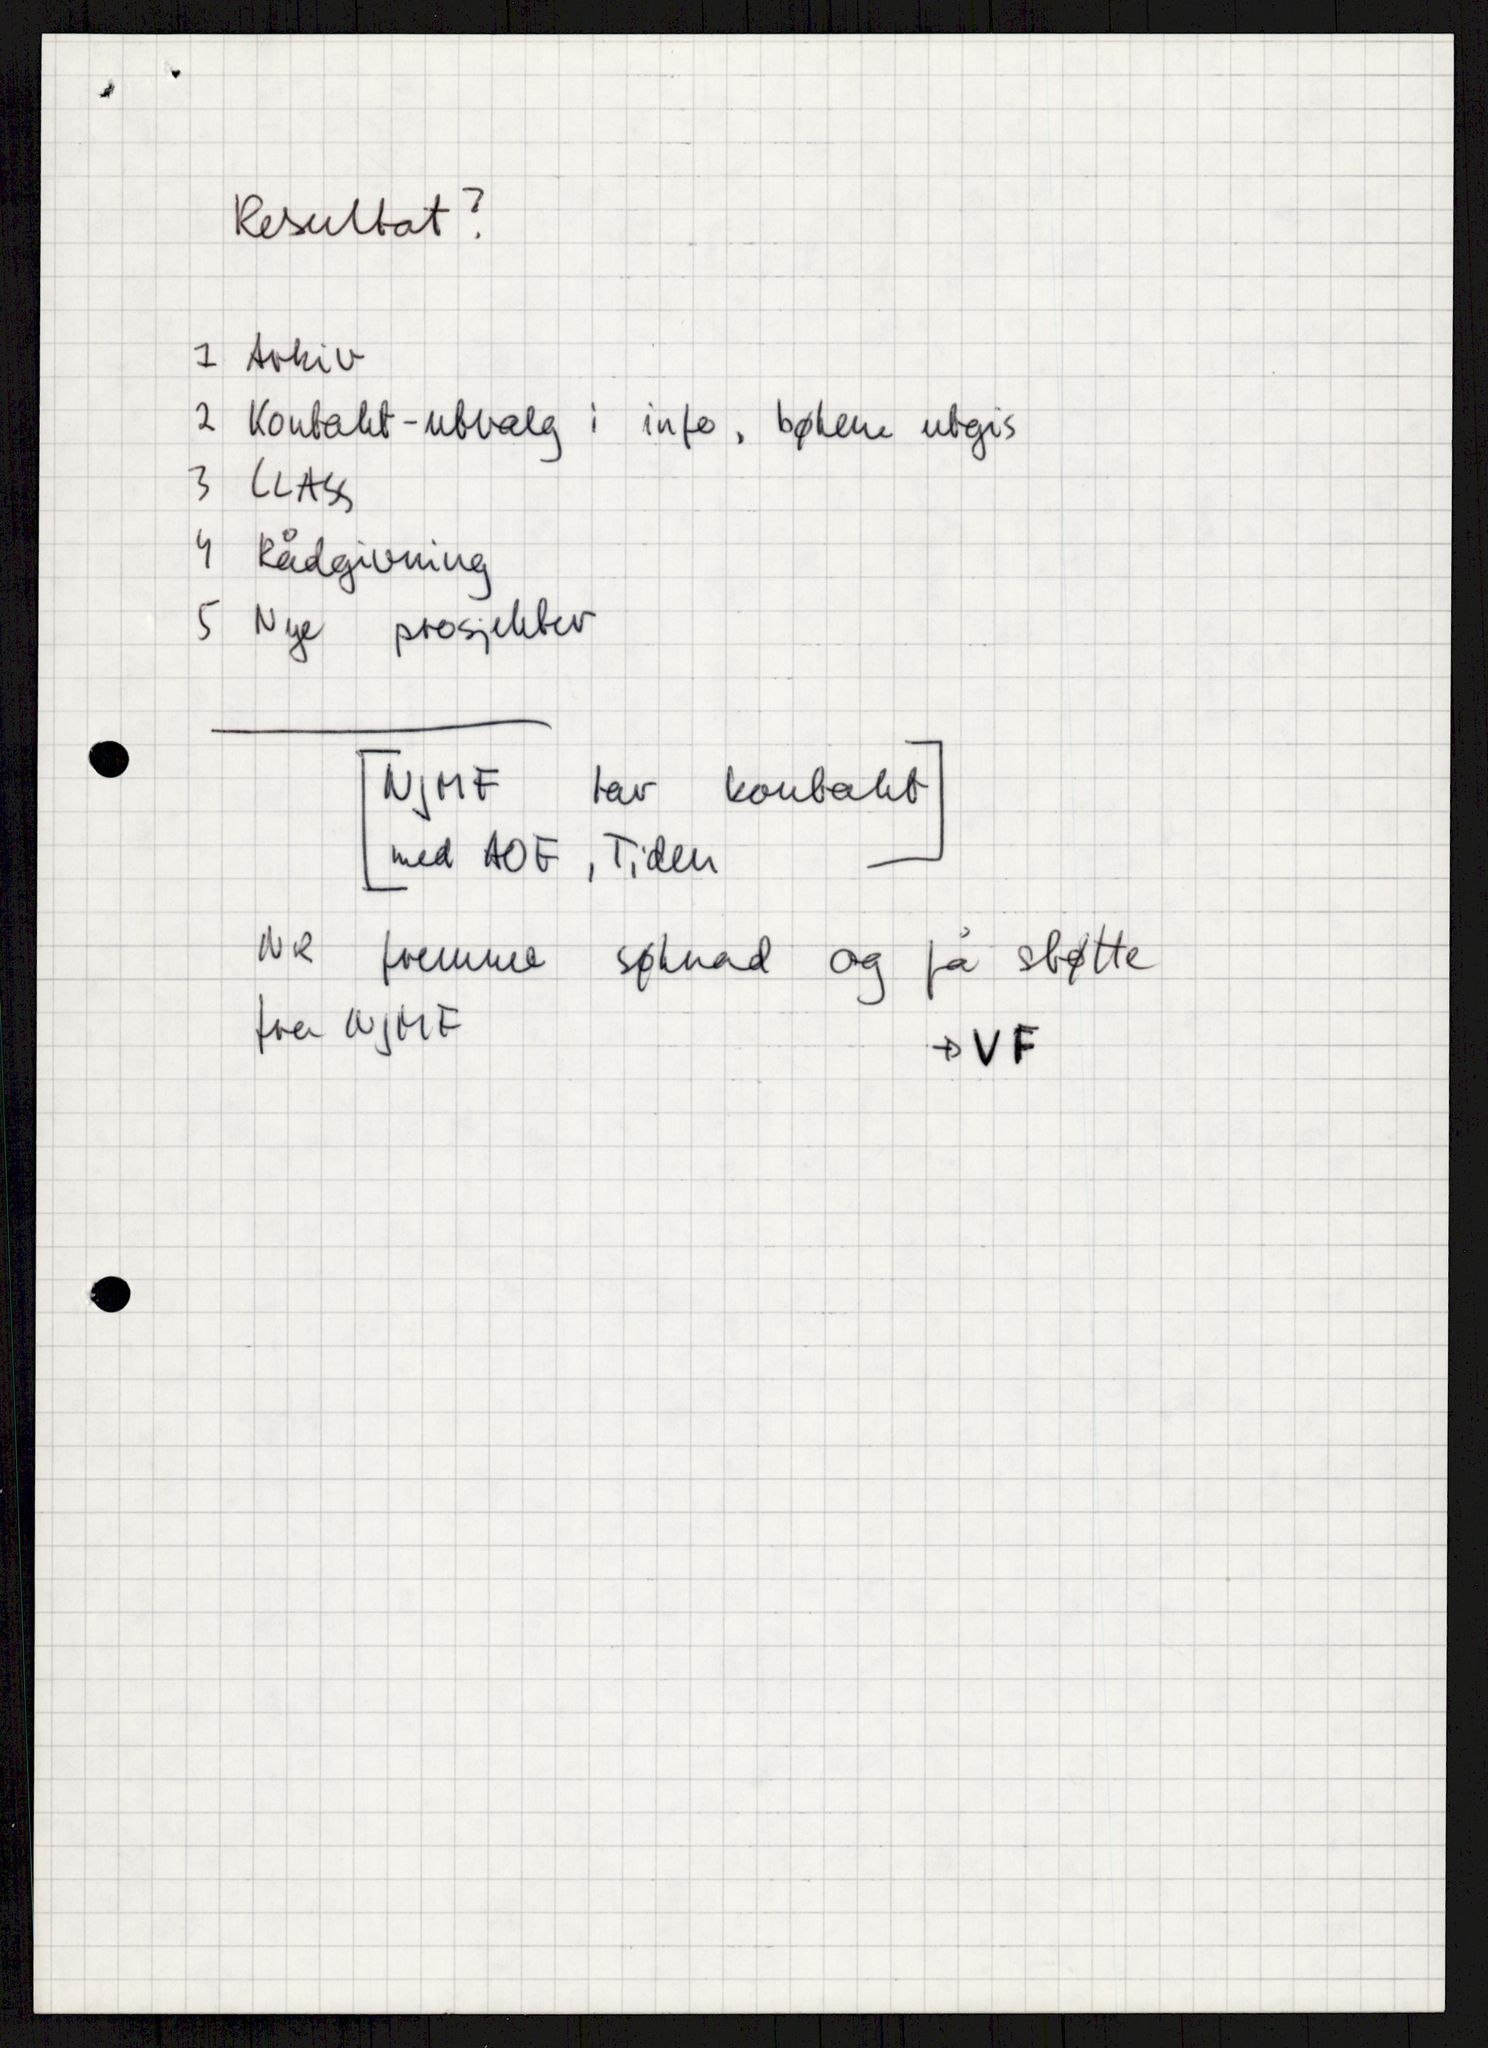 Resultat?
1 Arkiv
2 Kontakt-utvalg i info, bøkene utgis
3 CLASS
4 Rådgivning
5 Nye prosjekter
[NJMF tar kontakt
med AOF, Tiden]
NR fremme søknad og få støtte
fra NJMF
→ VF